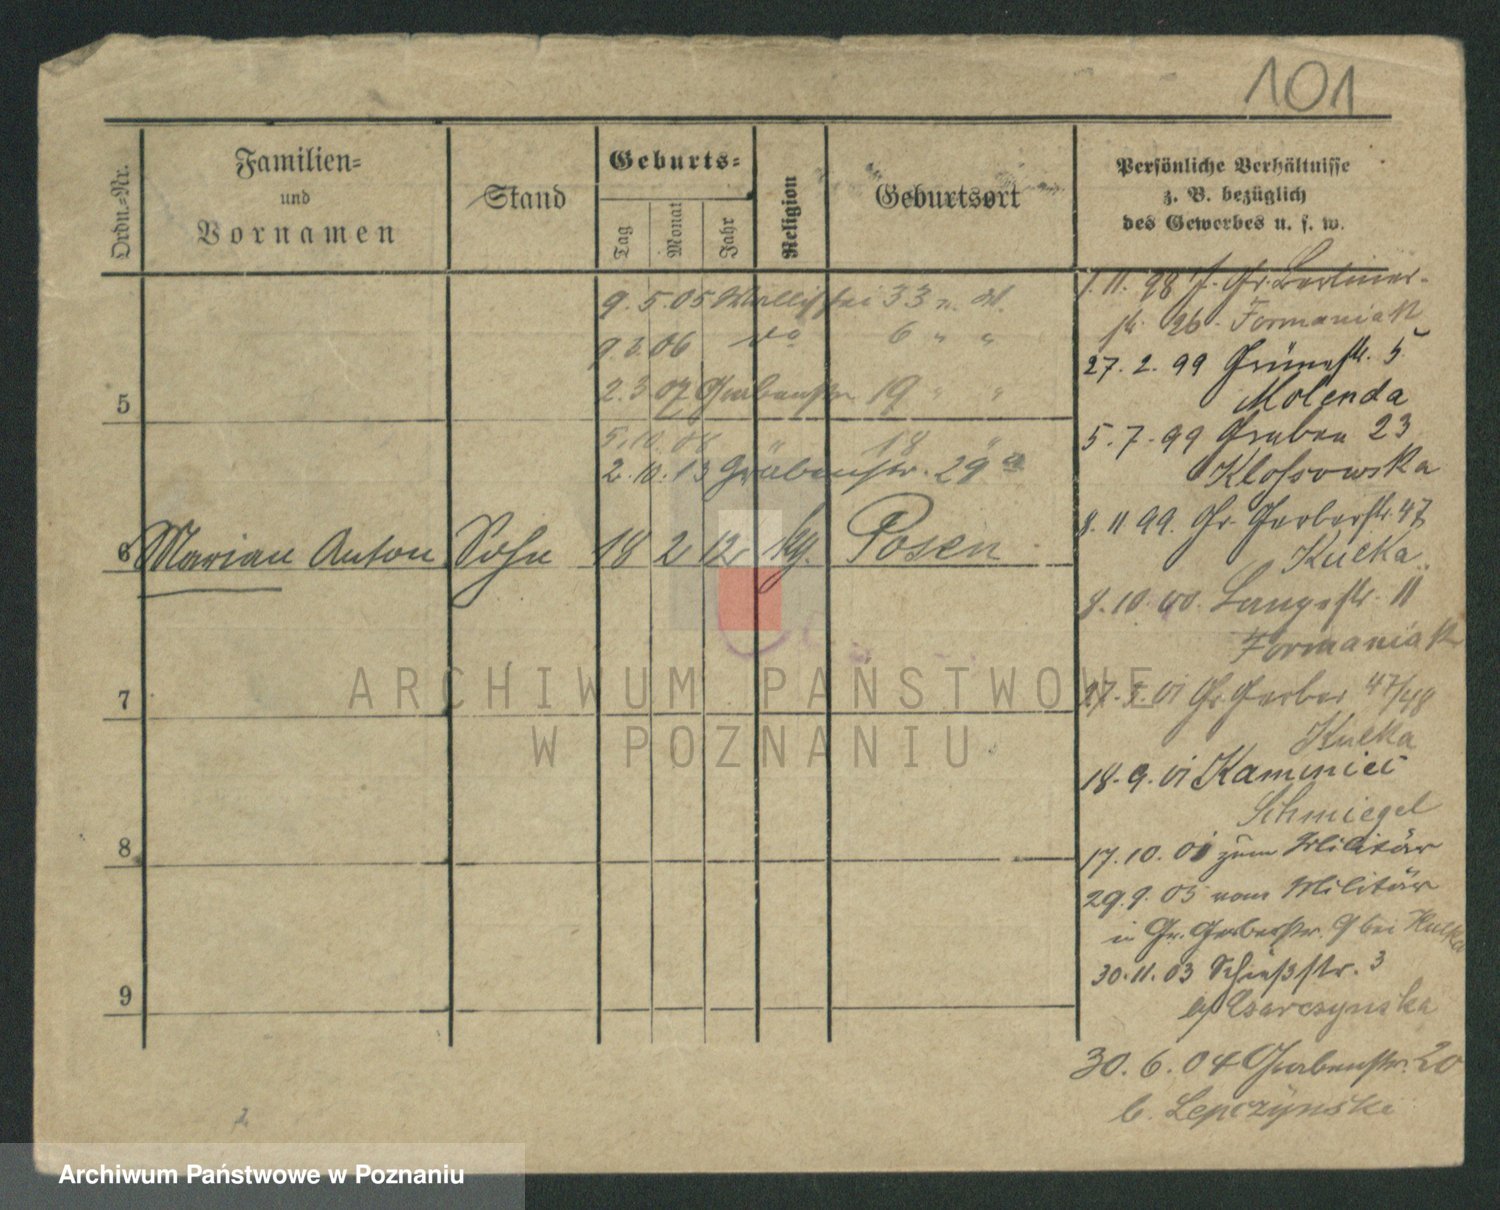 101
Ordn.-Nr.
Familien-
und
Vornamen
Stand
Geburts-
Tag
Monat
Jahr
Religion
Geburtsort
Persönliche Verhältnisse
z. B. bezüglich
des Gewerbes u. s. w.
9. 5. 05 33
9. 06 do 6 " "
2. 3. 07 Grabenstr. 19 " "
5
5. 10. 08 " 18 "
2. 10. 13 Grabenstr. 29a
6 Marian Anton Sohn 18 2 12 kg. Posen
7
8
9
1. 11. 98 Gr. Berliner-
str. 26. Formaniak
27. 2. 99 Grünestr. 5
Molenda
5. 7. 99 Graben 23
Klossowska
8. 11 99. Gr. Gerberstr. 47
Kulka
8. 10. 00. Langestr. 11
Formaniak
27. 5. 01 Gr. Gerber 47/48
Kulka
18. 9. 01 Kaminiec
Schmiegel
17. 10. 01 zum Militär
29. 9. 03 vom Militär
in Gr. Gerberstr. 9 bei Kulka
30. 11. 03 Schießstr. 3
b/ Csarczynska
30. 6. 04 Grabenstr. 20
b. Lepczynski
ARCHIWUM PAŃSTWOWE
W POZNANIU
Archiwum Państwowe w Poznaniu